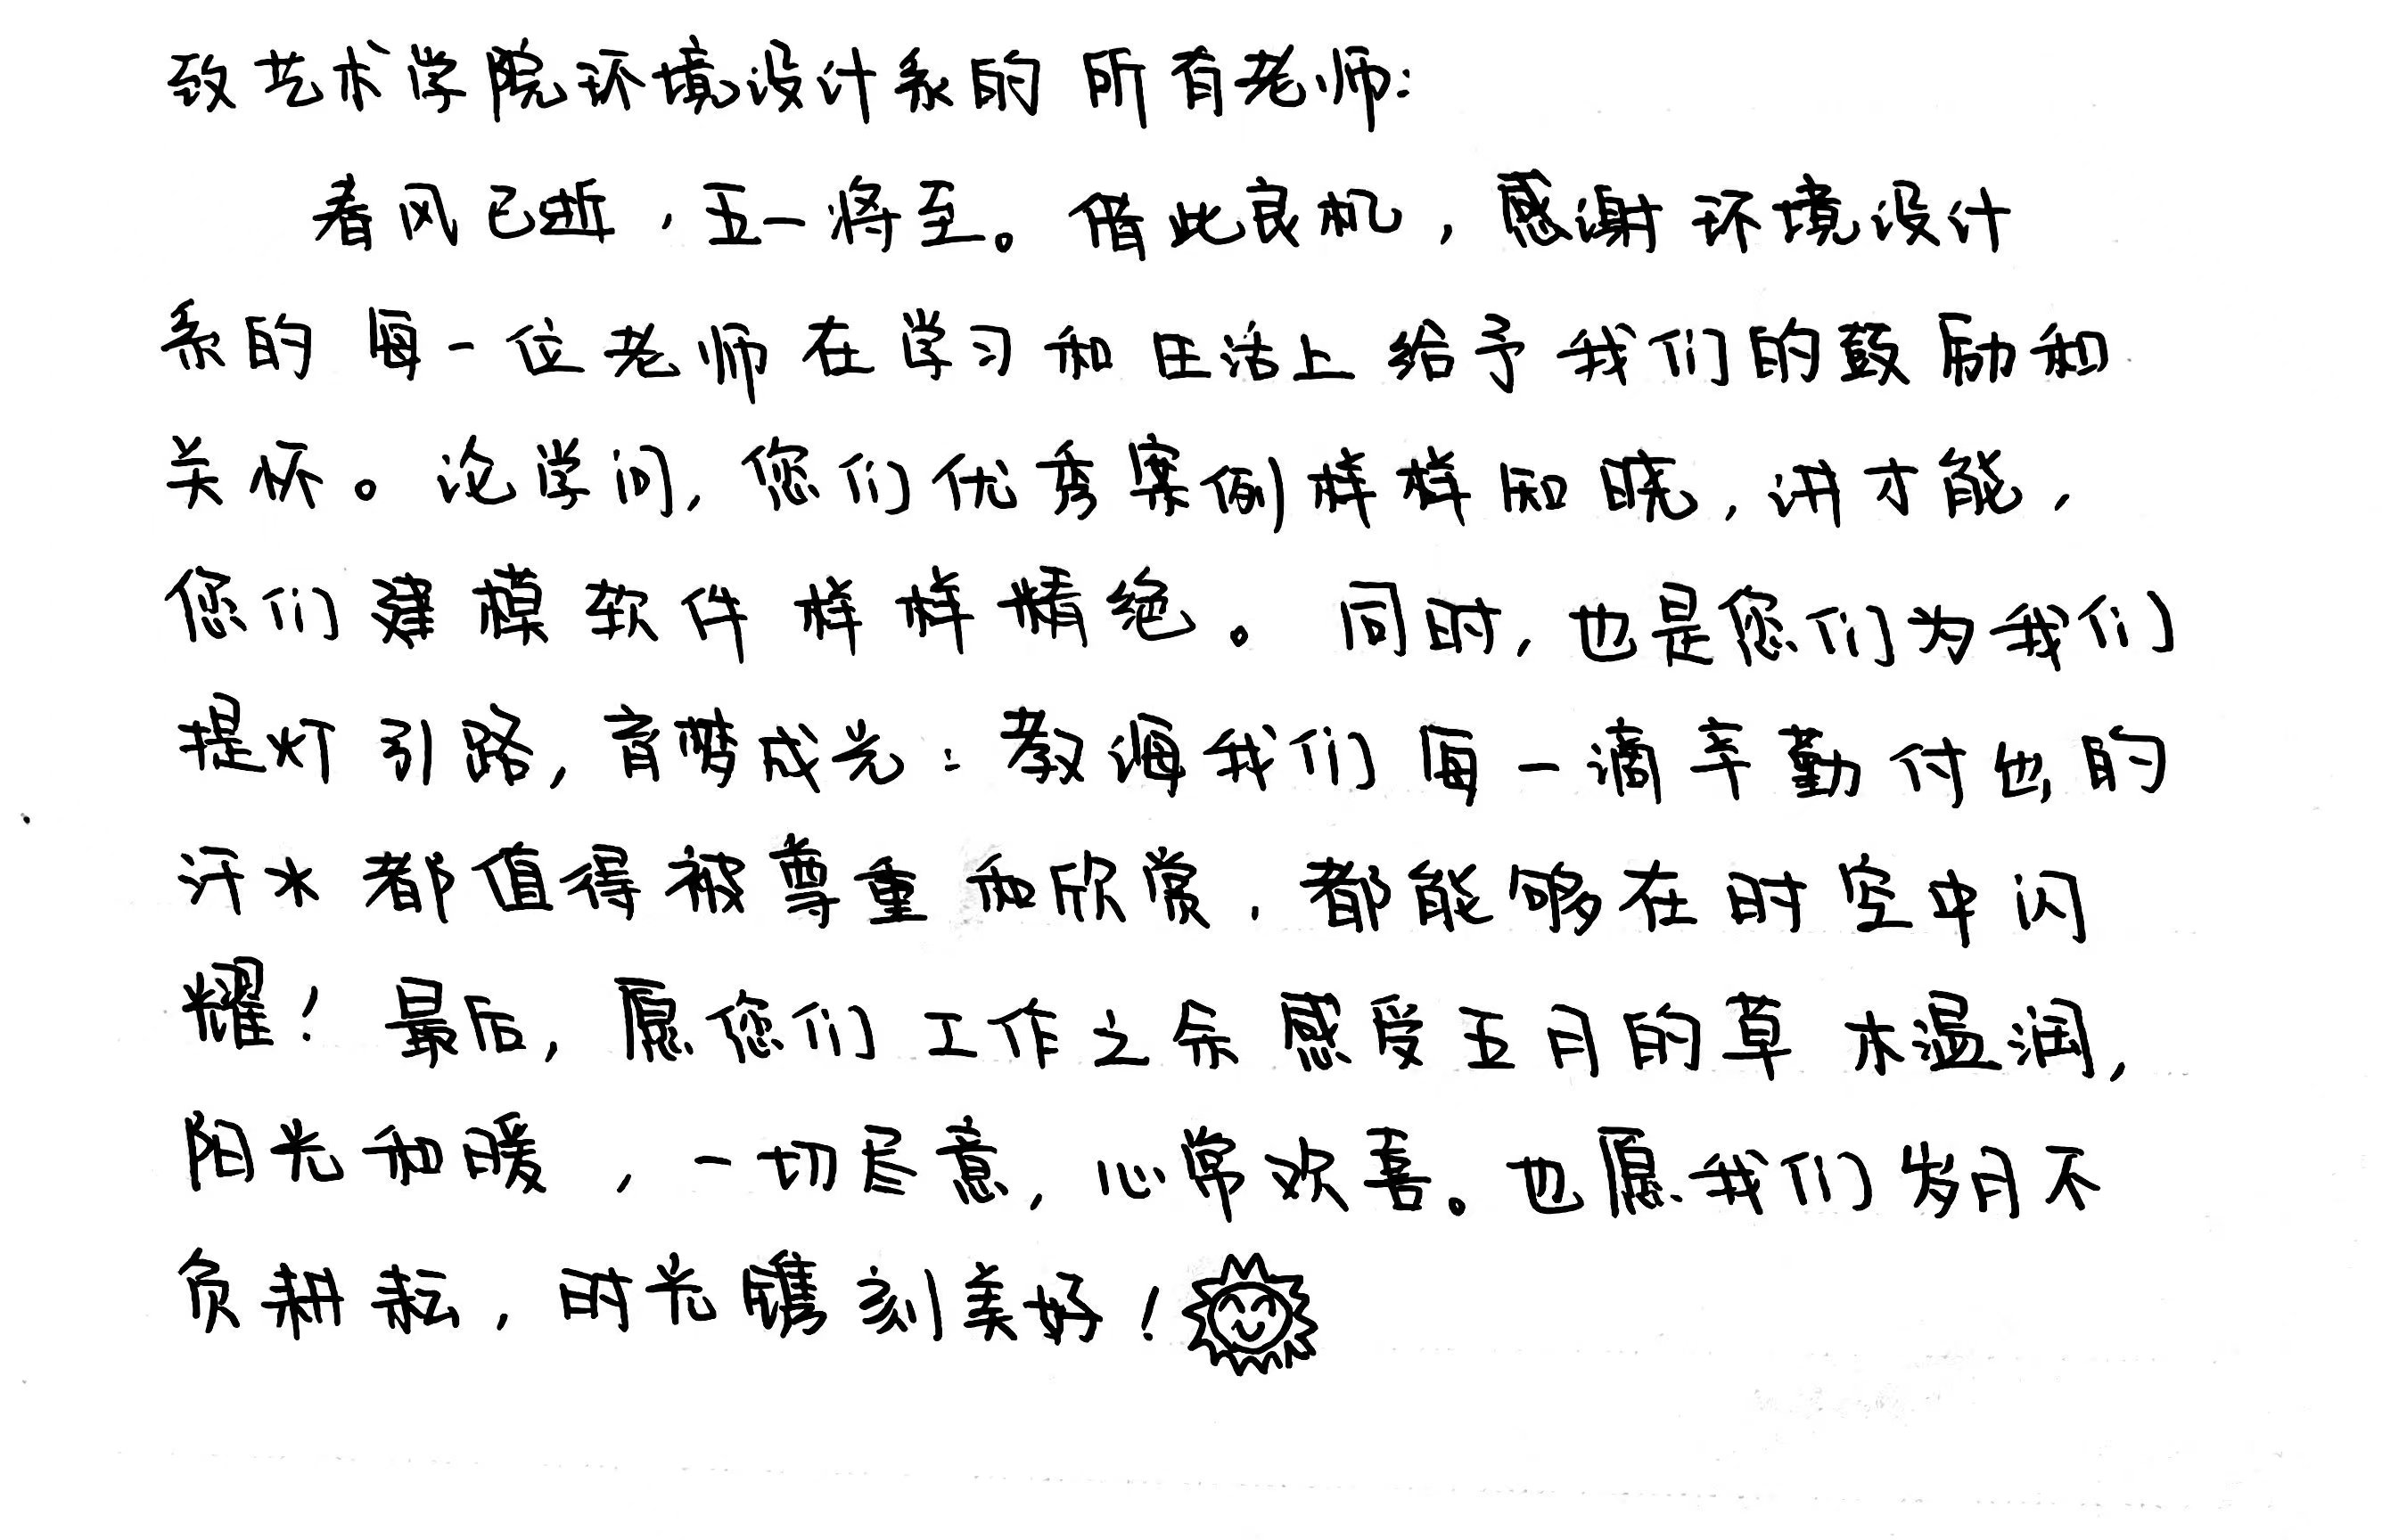 致艺术学院环境设计系的所有老师:
春风已逝,五一将至。借此良机,感谢环境设计
系的每一位老师在学习和生活上给予我们的鼓励和
关怀。论学问,您们优秀案例样样知晓,讲才能,
您们建模软件样样精绝。同时,也是您们为我们
提灯引路,育梦成光:教诲我们每一滴辛勤付出的
汗水都值得被尊重和欣赏,都能够在时空中闪
耀!最后,愿您们工作之余感受五月的草木温润,
阳光和暖,一切尽意,心常欢喜。也愿我们岁月不
负耕耘,时光镌刻美好!